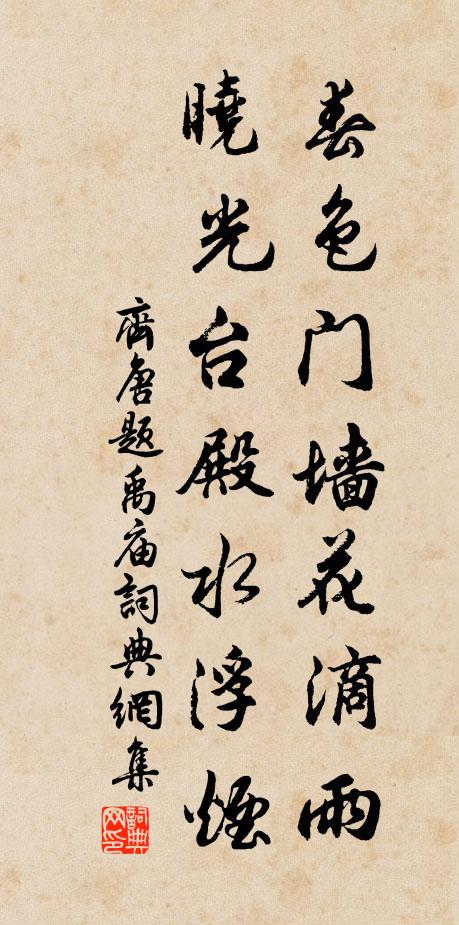 春色门墙花滴雨
曉光台殿水浮煙
齊唐題禹庙詞典網集
詞典网印